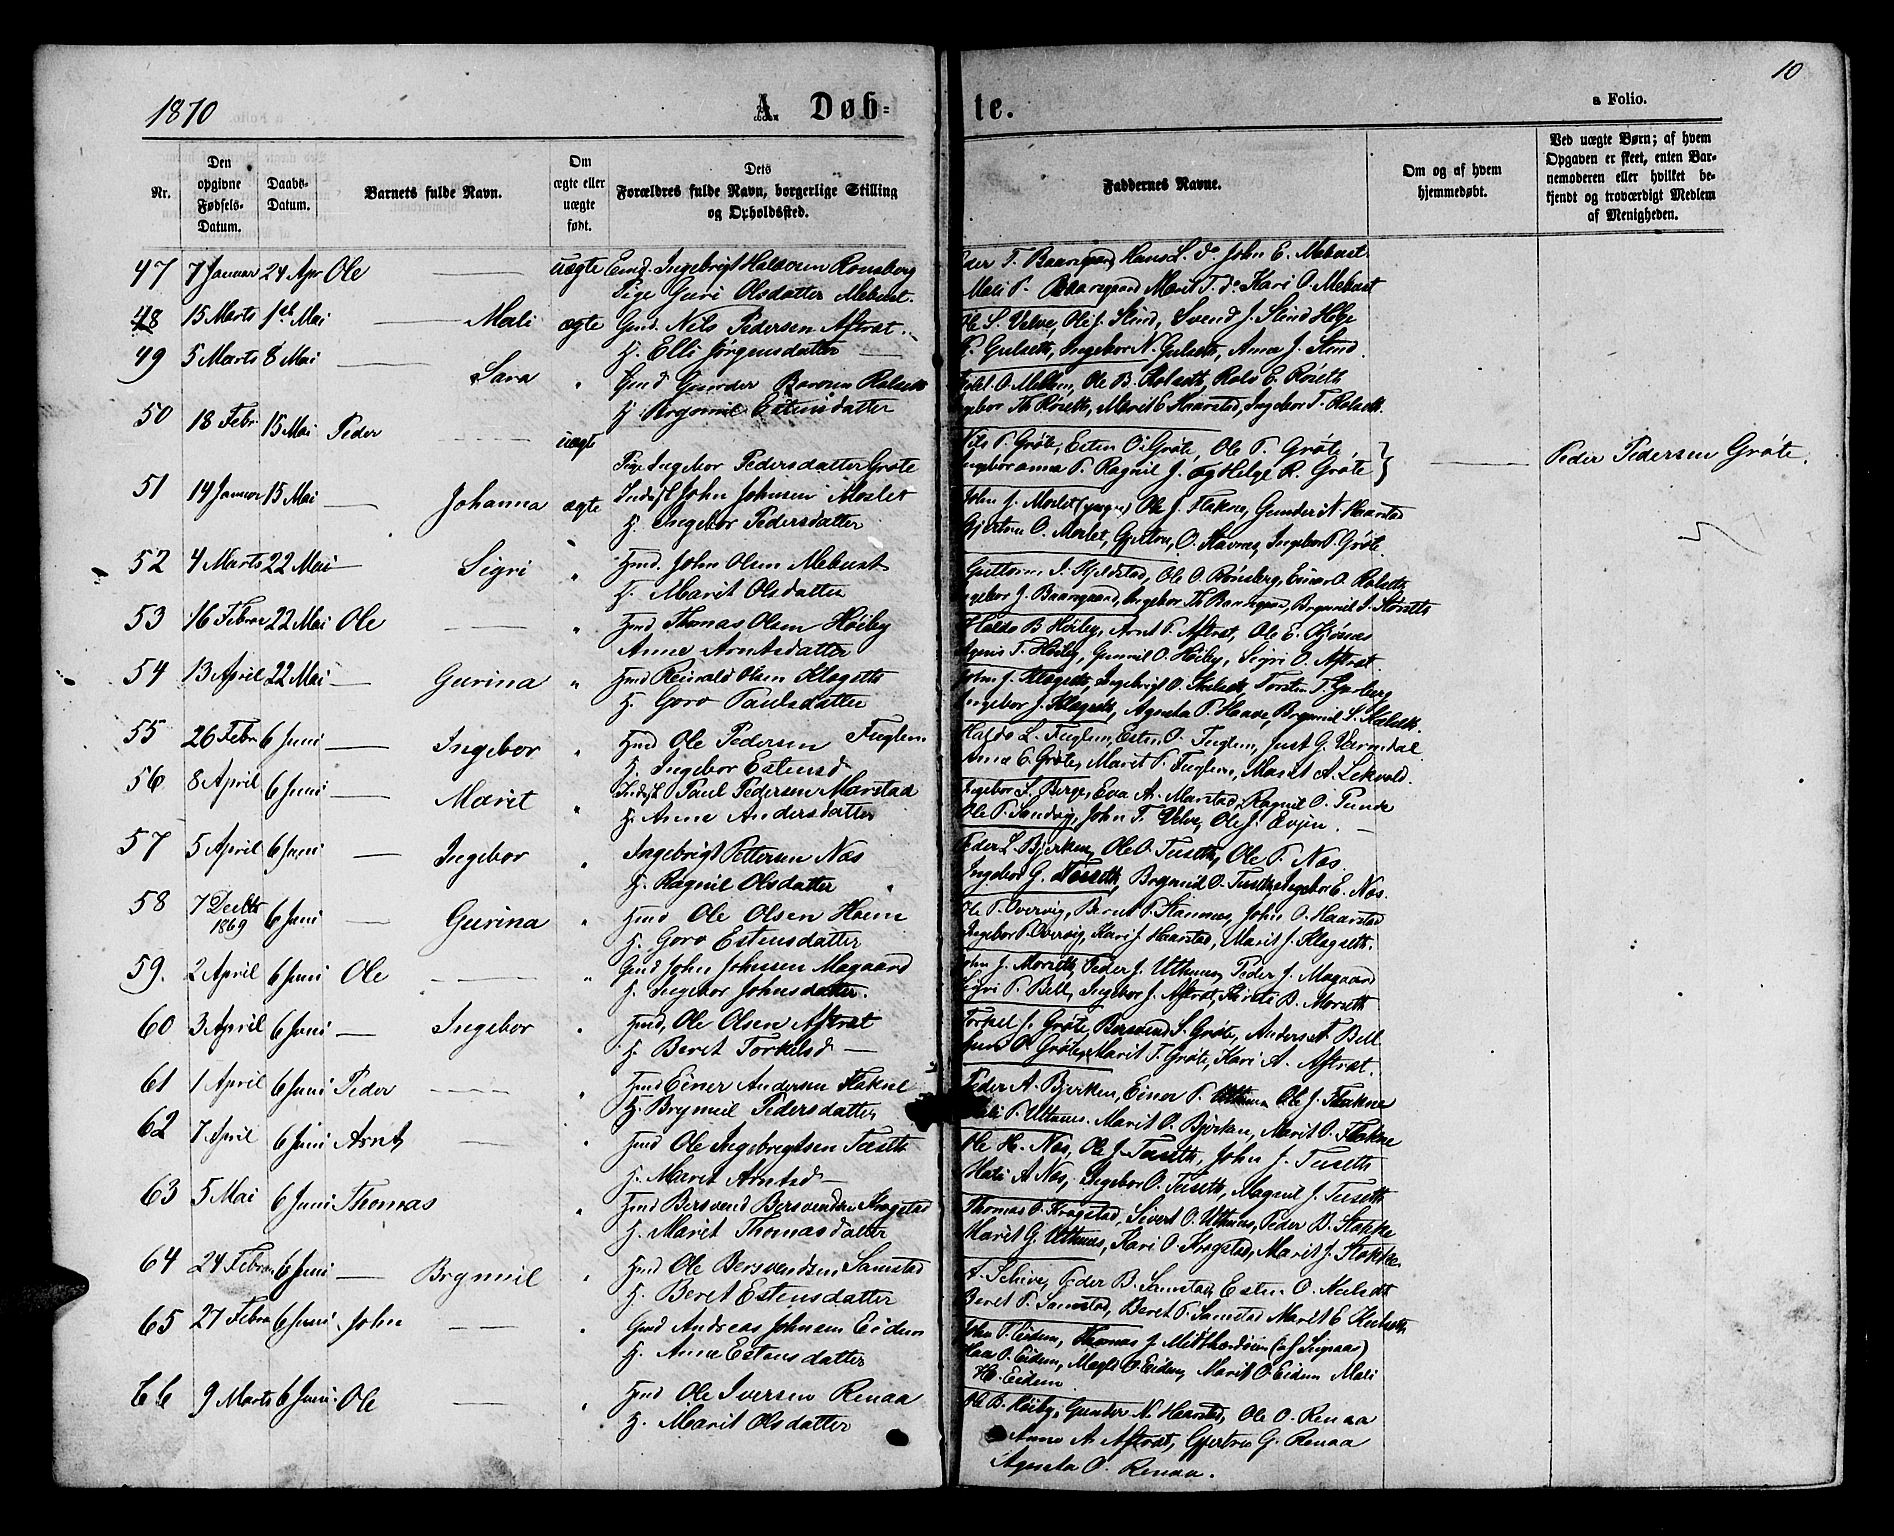 1870
A. Døb-
te.
a Folio.
10
Nr.
Den opgivne Fødsels-Datum.
Daabs-Datum.
Barnets fulde Navn.
Om ægte eller uægte født.
Dets Forældres fulde Navn, borgerlige Stilling og Opholdssted.
Faddernes Navne.
Om og af hvem hjemmedøbt.
Ved uægte Børn; af hvem Opgaven er skeet, enten Barnemoderen eller hvilket bekjendt og troværdigt Medlem af Menigheden.
47 7 Januar 24 Apr Ole — uægte Ingebrigt Haldorsen Ronsberg
Pige Guri Olsdatter Mebust.
Peder T. Baargaard, Hans L. do John E. Mebust
Mali P. Baargaard Marit T. do Kari O. Mebust
48 15 Marts 1ste Mai — Mali ægte Gmd. Nils Pedersen Aftret.
H. Elli Jørgensdatter —
Ole S. Velve, Ole J. Slind, Svend J. Slind
P. Gulseth, Ingebor N. Gulseth, Anne J. Slind.
49 5 Marts 8 Mai — Sara " Gmd Gunder
H. Brynnil Estensdatter
O. Mellem, Ole B. Rolseth, Rolv E. Røseth
Ingebor Th Røseth, Marit E Haarstad, Ingebor T. Rolseth.
50 18 Febr. 15 Mai Peder — uægte
Pige Ingebor Pedersdatter Grøte
Nils P. Grøte, Esten O. Grøte, Ole P. Grøte,
Ingeboranna P. Ragnil J. og Helge R. Grøte } — Peder Pedersen Grøte.
51 14 Januar 15 Mai — Johanna ægte Inds. John Johnsen Moslet
H. Ingebor Pedersdatter
John J. Moslet (yngre) Ole J. Flakne, Gunder N. Haarstad
Gjertru O. Moslet, Gjertru O. Stavnes, Ingebor P. Grøte.
52 4 Marts 22 Mai — Sigri " Gmd. John Olsen Mebust
H. Marit Olsdatter
Guttorm I. Kjelstad, Ole O. Rønsberg, Einar O. Rolseth
Ingebor J. Baargaard, Ingebor Th Baargaard, Brynnil I. Storeth
53 16 Febru 22 Mai Ole — " Gmd Thomas Olsen Høiby
Anne Arntsdatter
Haldo B Høiby, Arnt P. Aftret, Ole E. Kjøsnæs
Agnis T. Høiby, Gunnil O. Høiby, Sigri O. Aftret.
54 13 April 22 Mai — Gurina " Gmd Reinald Olsen Klageth
H. Goro Paulsdatter
John J. Klageth, Ingebrigt O. Torsten T. Garberg
Ingebor J. Klageth, Agneta P. Haave, Brynnil S.
55 26 Febr 6 Juni — Ingebor " Gmd Ole Pedersen Fuglem
H. Ingebor Estensd
Haldo L. Fuglem, Esten O. Fuglem, Just G. Varmdal
Anne E. Grøte, Marit P. Fuglem, Marit A. Lekvold.
56 8 April 6 Juni — Marit " Inds. Paul Pedersen Marstad
H. Anne Andersdatter
Ingebor S. Berge, Eva A. Marstad, Ragnil O. Punde
Ole P. Sandvig, John T. Velve, Ole J. Evjen. —
57 5 April 6 Juni — Ingebor " Ingebrigt Pettersen Næs
H. Ragnil Olsdatter "
Peder L Bjerken, Ole O. Tuseth, Ole P. Næs.
Ingebor G. Tuseth, Brynnil O. Tuseth, Ingebor E. Næs.
58 7 Decbr 1869 6 Juni — Gurina " Gmd Ole Olsen Hoem
H. Goro Estensdatter
Ole P. Overvig, Bernt P. Stamnes, John O. Haarstad
Ingebor P. Overvig, Kari J. Haarstad, Marit J. Klageth.
59. 2 April 6 Juni Ole — " Gmd John Johnsen Mogaard
H. Ingebor Johnsdatter.
John J. Morseth, Peder J. Uthuus, Peder J. Mogaard
Sigri P. Bell, Ingebor J. Aftret, Kirsti B. Morseth
60 3 April 6 Juni — Ingebor " Gmd. Ole Olsen Aftret
H. Beret Torkelsd —
Torkel J. Grøte, Bersvend S. Grøte, Anders A. Bell
Guru O. Grøte, Marit T. Grøte, Kari A. Aftret.
61 1 April 6 Juni Peder — " Gmd Einer Andersen Flakne
H. Brynnil Pedersdatter
Peder A. Bjerken, Einer P. Uthuus Ole J. Flakne
Mali P. Uthuus. Marit O. Bjerken, Marit O. Flakne
62 7 April 6 Juni Arnt — " Gmd Ole Ingebrigtsen Tuseth
H. Marit Arntsd —
Ole H. Næs, Ole J. Tuseth, John J. Tuseth
Mali A Næs, Ingebor O. Tuseth, Magnil J. Tuseth
63 5 Mai 6 Juni Thomas " Gmd Bersvend Bersvendsen Kragstad
H. Marit Thomasdatter
Thomas O. Kragstad, Sivert O. Uthuus, Peder B. Stokke
Marit G. Uthuus, Kari O. Kragstad, Marit J. Stokke.
64 24 Februar 6 Juni — Brynnil " Gmd Ole Bersvendsen Samstad
H. Beret Estensdatter
A. Schive, Peder B. Samstad, Esten O. Kulseth
Beret P. Samstad, Beret P. Samstad Marit E Kulseth
65 27 Febru 6 Juni John — " Gmd Andreas Johnsen Eidem
H. Anne Estensdatter
John P. Eidem, Thomas J. (af Singsaas)
O. Eidem, Magli O. Eidem, Marit O. Eidem Mali
H. Eidem
66 9 Marts 6 Juni Ole — " Gmd Ole Iversen Renaa
H. Marit Olsdatter
Ole B. Høiby, Gunder N. Haarstad, Ole O. Renaa
Anne A. Aftret, Gjertru G. Renaa
Agneta O. Renaa.